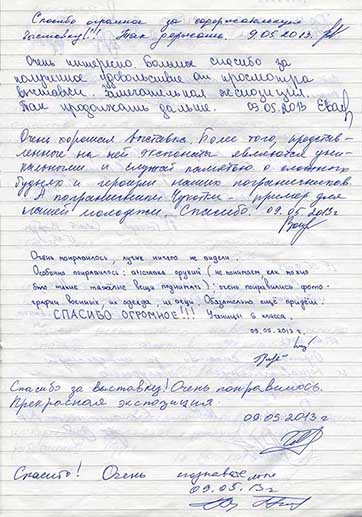 Спасибо огромное за содержательную
выставку!!! Так держать. 9.05.2013.
Очень интересно. Большое спасибо за
полученное удовольствие от просмотра
выставки. Замечательная экспозиция.
Так продолжать дальше. 09.05.2013
Очень хорошая выставка. Более того, представ-
ленные на ней экспонаты являются уни-
кальными и служат памятью о сложных
буднях и героизм наших пограничников.
А пограничники Чукотки - пример для
нашей молодёжи. Спасибо! 09.05.2013г
Очень понравилось, лучше ничего не видели.
Особенно понравилось: оружий (не понимаем, как можно
было такие тяжёлые вещи поднимать); очень понравились фото-
графии военных, их одежда, их еда. Обязательно ещё придём!
СПАСИБО ОГРОМНОЕ!!! Ученицы 6 класса.
09.05.2013г.
Спасибо за выставку! Очень понравилось.
Прекрасная экспозиция
09.05.2013г
Спасибо! Очень познавательно
09.05.13г